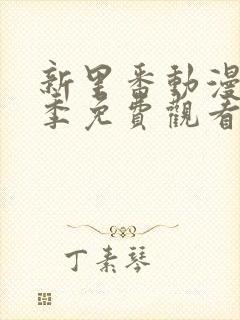 新里番動漫
季免費觀看
丁素琴